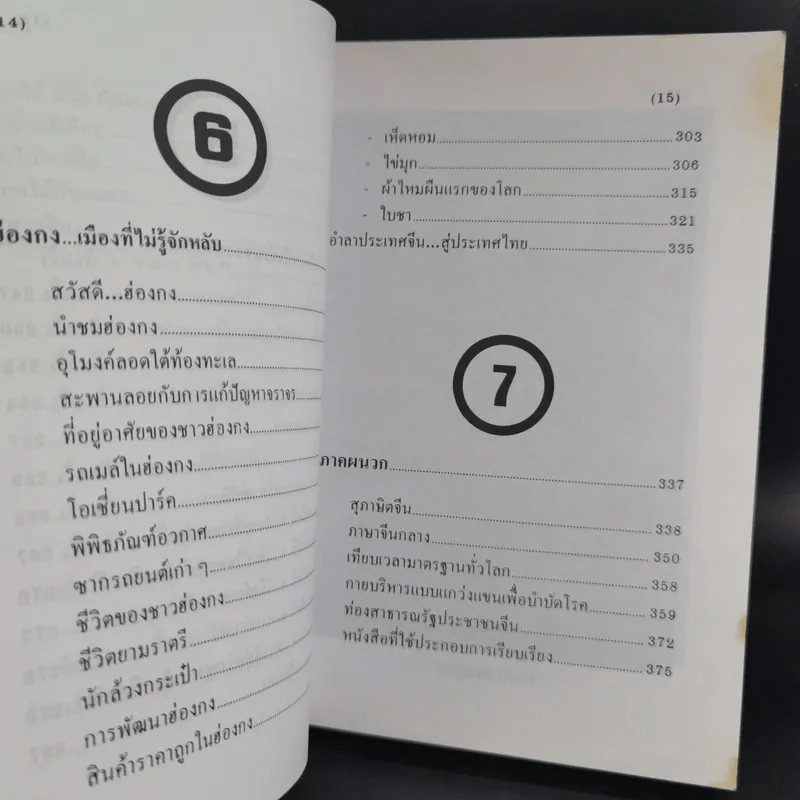 14)
6
ฮ่องกง...เมืองที่ไม่รู้จักหลับ
สวัสดี...ฮ่องกง
นำชมฮ่องกง
อุโมงค์ลอดใต้ท้องทะเล
สะพานลอยกับการแก้ปัญหาจราจร
ที่อยู่อาศัยของชาวฮ่องกง
รถเมล์ในฮ่องกง
โอเชี่ยนปาร์ค
พิพิธภัณฑ์อวกาศ
ซากรถยนต์เก่า ๆ
ชีวิตของชาวฮ่องกง
ชีวิตยามราตรี
นักล้วงกระเป๋า
การพัฒนาฮ่องกง
สินค้าราคาถูกในฮ่องกง
(15)
- เห็ดหอม 303
- ไข่มุก 306
- ผ้าไหมผืนแรกของโลก 315
- ใบชา 321
อำลาประเทศจีน...สู่ประเทศไทย 335
7
ภาคผนวก 337
สุภาษิตจีน 338
ภาษาจีนกลาง 350
เทียบเวลามาตรฐานทั่วโลก 358
กายบริหารแบบแกว่งแขนเพื่อบำบัดโรค 359
ท่องสาธารณรัฐประชาชนจีน 372
หนังสือที่ใช้ประกอบการเรียบเรียง 375